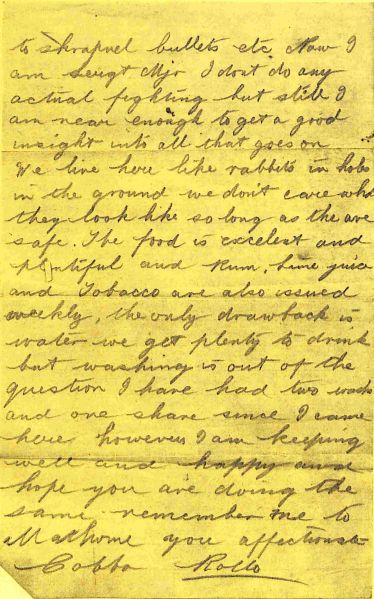 to shrapnel bullets etc Now I
am sergt Mjr I dont do any
actual fighting but still I
am near enough to get a good
insight into all that goes on
We live here like rabbits in hols
in the ground we don't care what
they look like so long as the are
safe. The food is excelent and
plentiful and Rum, lime juice
and Tobacco are also issued
weekly, the only drawback is
water we get plenty to drink
but washing is out of the
question I have had two wash
and one shave since I came
here however I am keeping
well and happy and
hope you are doing the
same remember me to
all at home you affectionate
Cobba Rollo